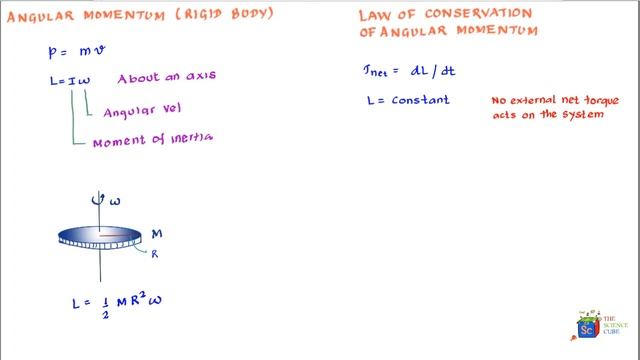 ANGULAR MOMENTUM (RIGID BODY)
P = mv
L = Iω About an axis
Angular vel
Moment of inertia
ω
M
R
L = 1/2 MR²ω
LAW OF CONSERVATION
OF ANGULAR MOMENTUM
τnet = dL/dt
L = constant
No external net torque
acts on the system
Sc
THE
SCIENCE
CUBE